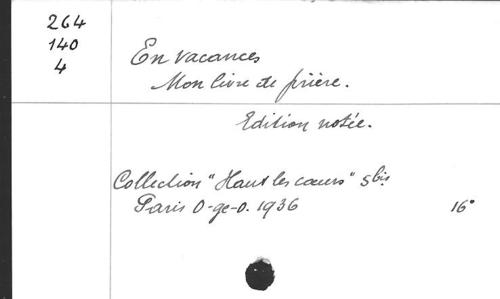 264
140
4
En vacances
Mon livre de prière.
Edition notée.
Collection "Haut les cœurs" 5bis
Paris O-ge-o. 1936 16°